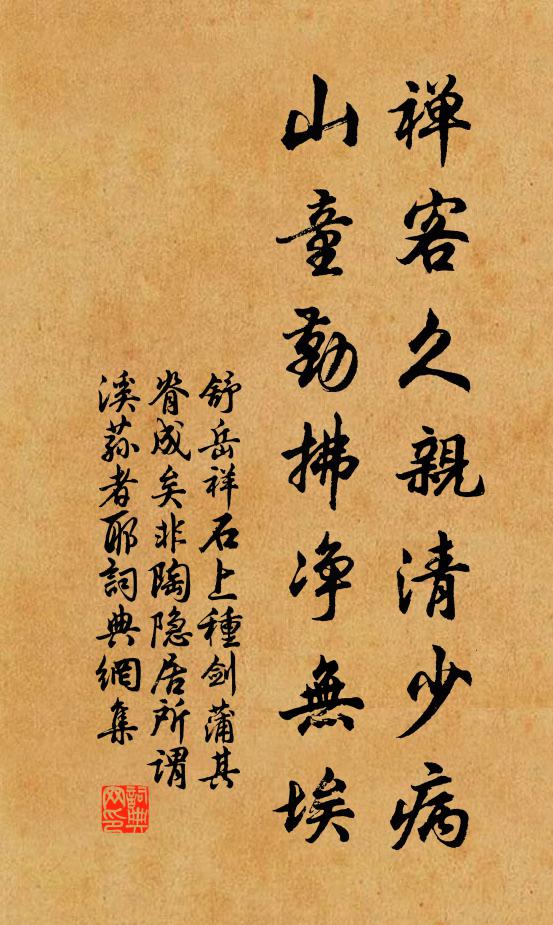 禅客久親清少病
山童勤拂净無埃
舒岳祥石上種剑蒲其
脊成矣非陶隐居所谓
溪荪者耶詞典網集
詞典网印